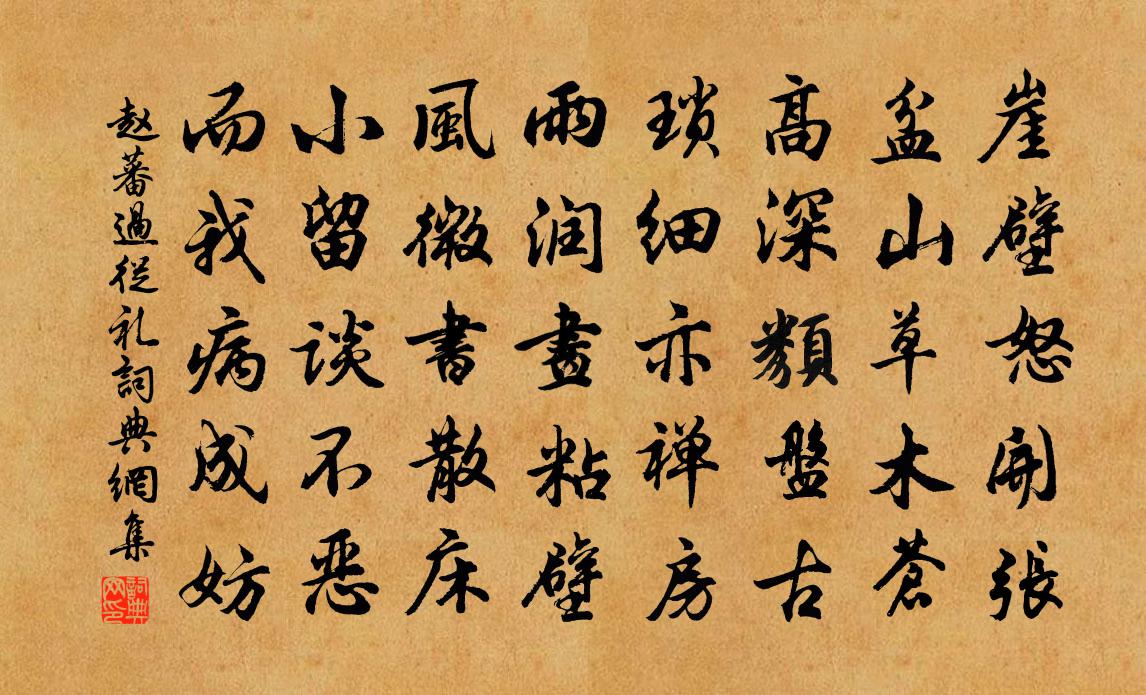 崖壁怒開張
盆山草木蒼
高深類盤古
瑣細亦禅房
雨润畫粘壁
風微書散床
小留談不惡
而我病成妨
赵蕃過從礼詞典網集
詞典网印